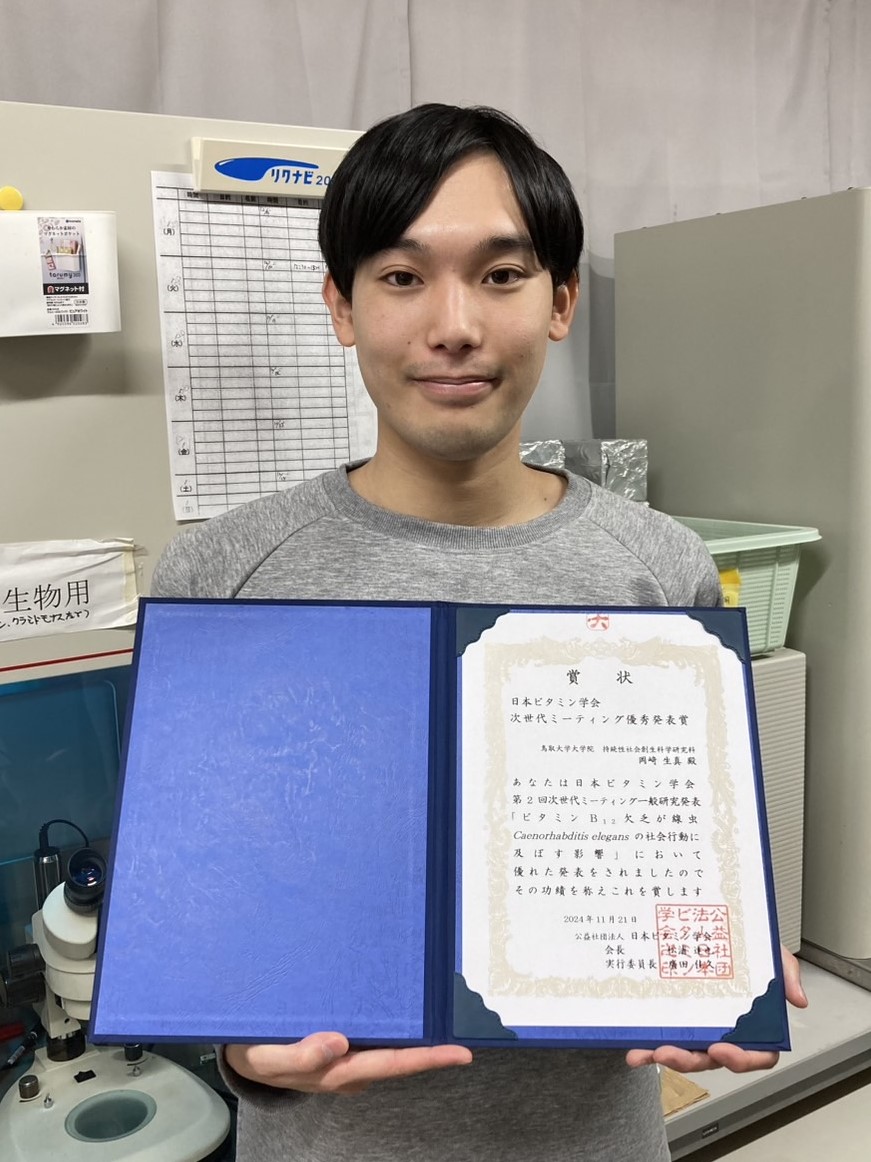 リクナビ20
時間
(月)
(火)
(水)
(木)
(金)
(土)
マグネットポケット
torumy
マグネット付
生物用
ン、クラミドモナスなど)
賞 状
日本ビタミン学会
次世代ミーティング優秀発表賞
鳥取大学大学院 持続性社会創生科学研究科
岡崎 生真 殿
あなたは日本ビタミン学会
第2回次世代ミーティング一般研究発表
「ビタミン B12欠乏が線虫
Caenorhabditis elegans の社会行動に
及ぼす影響」において
優れた発表をされましたので
その功績を称えこれを賞します
2024年11月21日
公益社団法人 日本ビタミン学会
会長
実行委員長